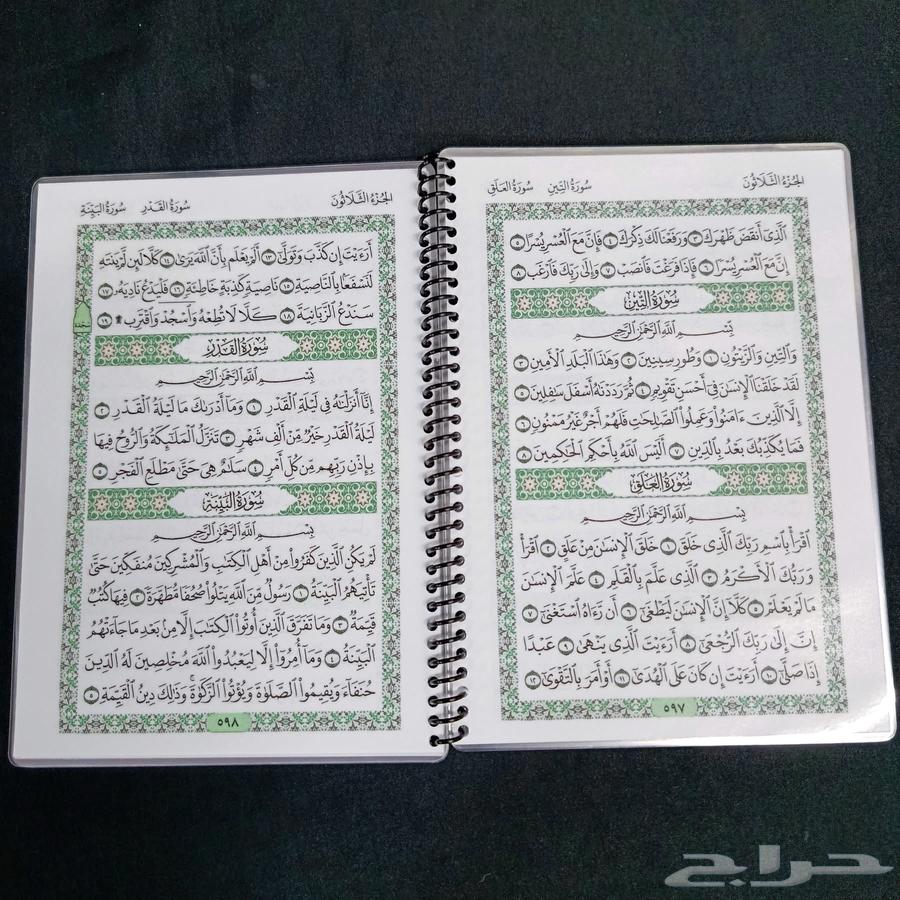 الجزء الثلاثون
سورة التين
سورة العلق
ٱلَّذِىٓ أَنقَضَ ظَهْرَكَ ٣ وَرَفَعْنَا لَكَ ذِكْرَكَ ٤ فَإِنَّ مَعَ ٱلْعُسْرِ يُسْرًا ٥
إِنَّ مَعَ ٱلْعُسْرِ يُسْرًا ٦ فَإِذَا فَرَغْتَ فَٱنصَبْ ٧ وَإِلَىٰ رَبِّكَ فَٱرْغَب ٨
سُورَةُ التِّينِ
بِسْمِ ٱللَّهِ ٱلرَّحْمَٰنِ ٱلرَّحِيمِ
وَٱلتِّينِ وَٱلزَّيْتُونِ ١ وَطُورِ سِينِينَ ٢ وَهَٰذَا ٱلْبَلَدِ ٱلْأَمِينِ ٣
لَقَدْ خَلَقْنَا ٱلْإِنسَٰنَ فِىٓ أَحْسَنِ تَقْوِيمٍ ٤ ثُمَّ رَدَدْنَٰهُ أَسْفَلَ سَٰفِلِينَ ٥
إِلَّا ٱلَّذِينَ ءَامَنُوا۟ وَعَمِلُوا۟ ٱلصَّٰلِحَٰتِ فَلَهُمْ أَجْرٌ غَيْرُ مَمْنُونٍ ٦
فَمَا يُكَذِّبُكَ بَعْدُ بِٱلدِّينِ ٧ أَلَيْسَ ٱللَّهُ بِأَحْكَمِ ٱلْحَٰكِمِينَ ٨
سُورَةُ العَلَقِ
بِسْمِ ٱللَّهِ ٱلرَّحْمَٰنِ ٱلرَّحِيمِ
ٱقْرَأْ بِٱسْمِ رَبِّكَ ٱلَّذِى خَلَقَ ١ خَلَقَ ٱلْإِنسَٰنَ مِنْ عَلَقٍ ٢ ٱقْرَأْ
وَرَبُّكَ ٱلْأَكْرَمُ ٣ ٱلَّذِى عَلَّمَ بِٱلْقَلَمِ ٤ عَلَّمَ ٱلْإِنسَٰنَ
مَا لَمْ يَعْلَمْ ٥ كَلَّآ إِنَّ ٱلْإِنسَٰنَ لَيَطْغَىٰٓ ٦ أَن رَّءَاهُ ٱسْتَغْنَىٰٓ ٧
إِنَّ إِلَىٰ رَبِّكَ ٱلرُّجْعَىٰٓ ٨ أَرَءَيْتَ ٱلَّذِى يَنْهَىٰ ٩ عَبْدًا
إِذَا صَلَّىٰٓ ١٠ أَرَءَيْتَ إِن كَانَ عَلَى ٱلْهُدَىٰٓ ١١ أَوْ أَمَرَ بِٱلتَّقْوَىٰٓ ١٢
٥٩٧
الجزء الثلاثون
سورة القدر
سورة البينة
أَرَءَيْتَ إِن كَذَّبَ وَتَوَلَّىٰٓ ١٣ أَلَمْ يَعْلَم بِأَنَّ ٱللَّهَ يَرَىٰ ١٤ كَلَّا لَئِن لَّمْ يَنتَهِ
لَنَسْفَعًۢا بِٱلنَّاصِيَةِ ١٥ نَاصِيَةٍ كَٰذِبَةٍ خَاطِئَةٍ ١٦ فَلْيَدْعُ نَادِيَهُۥ ١٧
سَنَدْعُ ٱلزَّبَانِيَةَ ١٨ كَلَّا لَا تُطِعْهُ وَٱسْجُدْ وَٱقْتَرِب ۩ ١٩
سجدة
سُورَةُ القَدْرِ
بِسْمِ ٱللَّهِ ٱلرَّحْمَٰنِ ٱلرَّحِيمِ
إِنَّآ أَنزَلْنَٰهُ فِى لَيْلَةِ ٱلْقَدْرِ ١ وَمَآ أَدْرَىٰكَ مَا لَيْلَةُ ٱلْقَدْرِ ٢
لَيْلَةُ ٱلْقَدْرِ خَيْرٌ مِّنْ أَلْفِ شَهْرٍ ٣ تَنَزَّلُ ٱلْمَلَٰٓئِكَةُ وَٱلرُّوحُ فِيهَا
بِإِذْنِ رَبِّهِم مِّن كُلِّ أَمْرٍ ٤ سَلَٰمٌ هِىَ حَتَّىٰ مَطْلَعِ ٱلْفَجْرِ ٥
سُورَةُ البَيِّنَةِ
بِسْمِ ٱللَّهِ ٱلرَّحْمَٰنِ ٱلرَّحِيمِ
لَمْ يَكُنِ ٱلَّذِينَ كَفَرُوا۟ مِنْ أَهْلِ ٱلْكِتَٰبِ وَٱلْمُشْرِكِينَ مُنفَكِّينَ حَتَّىٰ
تَأْتِيَهُمُ ٱلْبَيِّنَةُ ١ رَسُولٌ مِّنَ ٱللَّهِ يَتْلُوا۟ صُحُفًا مُّطَهَّرَةً ٢ فِيهَا كُتُبٌ
قَيِّمَةٌ ٣ وَمَا تَفَرَّقَ ٱلَّذِينَ أُوتُوا۟ ٱلْكِتَٰبَ إِلَّا مِنۢ بَعْدِ مَا جَآءَتْهُمُ
ٱلْبَيِّنَةُ ٤ وَمَآ أُمِرُوٓا۟ إِلَّا لِيَعْبُدُوا۟ ٱللَّهَ مُخْلِصِينَ لَهُ ٱلدِّينَ
حُنَفَآءَ وَيُقِيمُوا۟ ٱلصَّلَوٰةَ وَيُؤْتُوا۟ ٱلزَّكَوٰةَ ۚ وَذَٰلِكَ دِينُ ٱلْقَيِّمَةِ ٥
٥٩٨
حراج